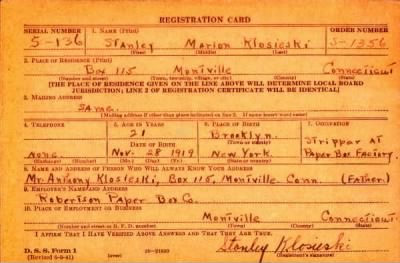 REGISTRATION CARD
SERIAL NUMBER 1. NAME (Print) ORDER NUMBER
S-136 Stanley Marion Klosieski S-1356
(First) (Middle) (Last)
2. PLACE OF RESIDENCE (Print)
Box 115 Montville Connecticut
(Number and street) (Town, township, village, or city) (County) (State)
[THE PLACE OF RESIDENCE GIVEN ON THE LINE ABOVE WILL DETERMINE LOCAL BOARD
JURISDICTION; LINE 2 OF REGISTRATION CERTIFICATE WILL BE IDENTICAL]
3. MAILING ADDRESS
same
[Mailing address if other than place indicated on line 2. If same insert word same]
4. TELEPHONE 5. AGE IN YEARS 6. PLACE OF BIRTH 7. OCCUPATION
21 Brooklyn. Stripper at
DATE OF BIRTH (Town or county)
none Nov. 28 1919 New York. Paper Box Factory.
(Exchange) (Number) (Mo.) (Day) (Yr.) (State or country)
8. NAME AND ADDRESS OF PERSON WHO WILL ALWAYS KNOW YOUR ADDRESS
Mr. Anthony Klosieski, Box 115, Montville Conn. (Father.)
9. EMPLOYER'S NAME AND ADDRESS
Robertson Paper Box Co.
10. PLACE OF EMPLOYMENT OR BUSINESS
Montville Connecticut
(Number and street or R. F. D. number) (Town) (County) (State)
I AFFIRM THAT I HAVE VERIFIED ABOVE ANSWERS AND THAT THEY ARE TRUE.
D. S. S. Form 1
(Revised 6-9-41) (over) Stanley Klosieski
(Registrant's signature)